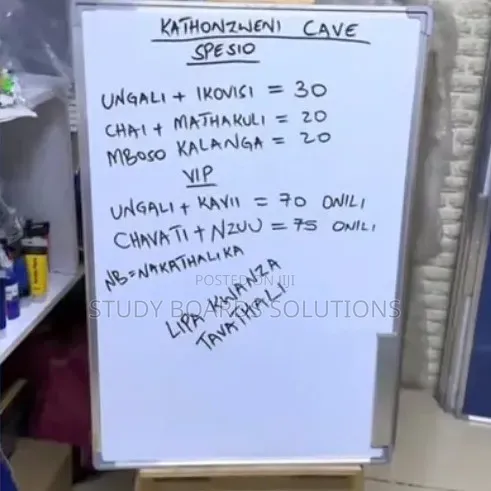 KATHONZWENI CAVE
SPESIO
UNGALI + IKOVISI = 30
CHAI + MATHAKULI = 20
MBOSO KALANGA = 20
VIP
UNGALI + KAVII = 70 ONILI
CHAVATI + NZUU = 75 ONILI
NB = NAKATHALIKA
POSTED ON JIJI
STUDY BOARDS SOLUTIONS
LIPA KWANZA
TAVATHALI